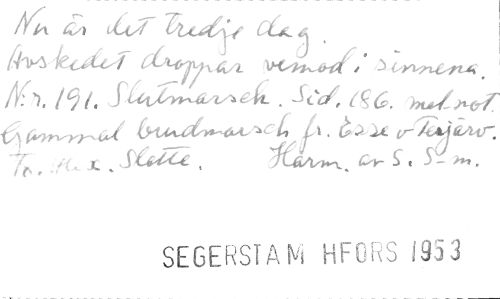 Nu är det tredje dag.
Avskedet droppar vemod i sinnena.
N:r. 191. Slutmarsch. Sid. 186. mel. not.
Gammal brudmarsch fr. Esse o Terjärv.
Slotte. Harm. av S. S-m.
SEGERSTAM HFORS 1953